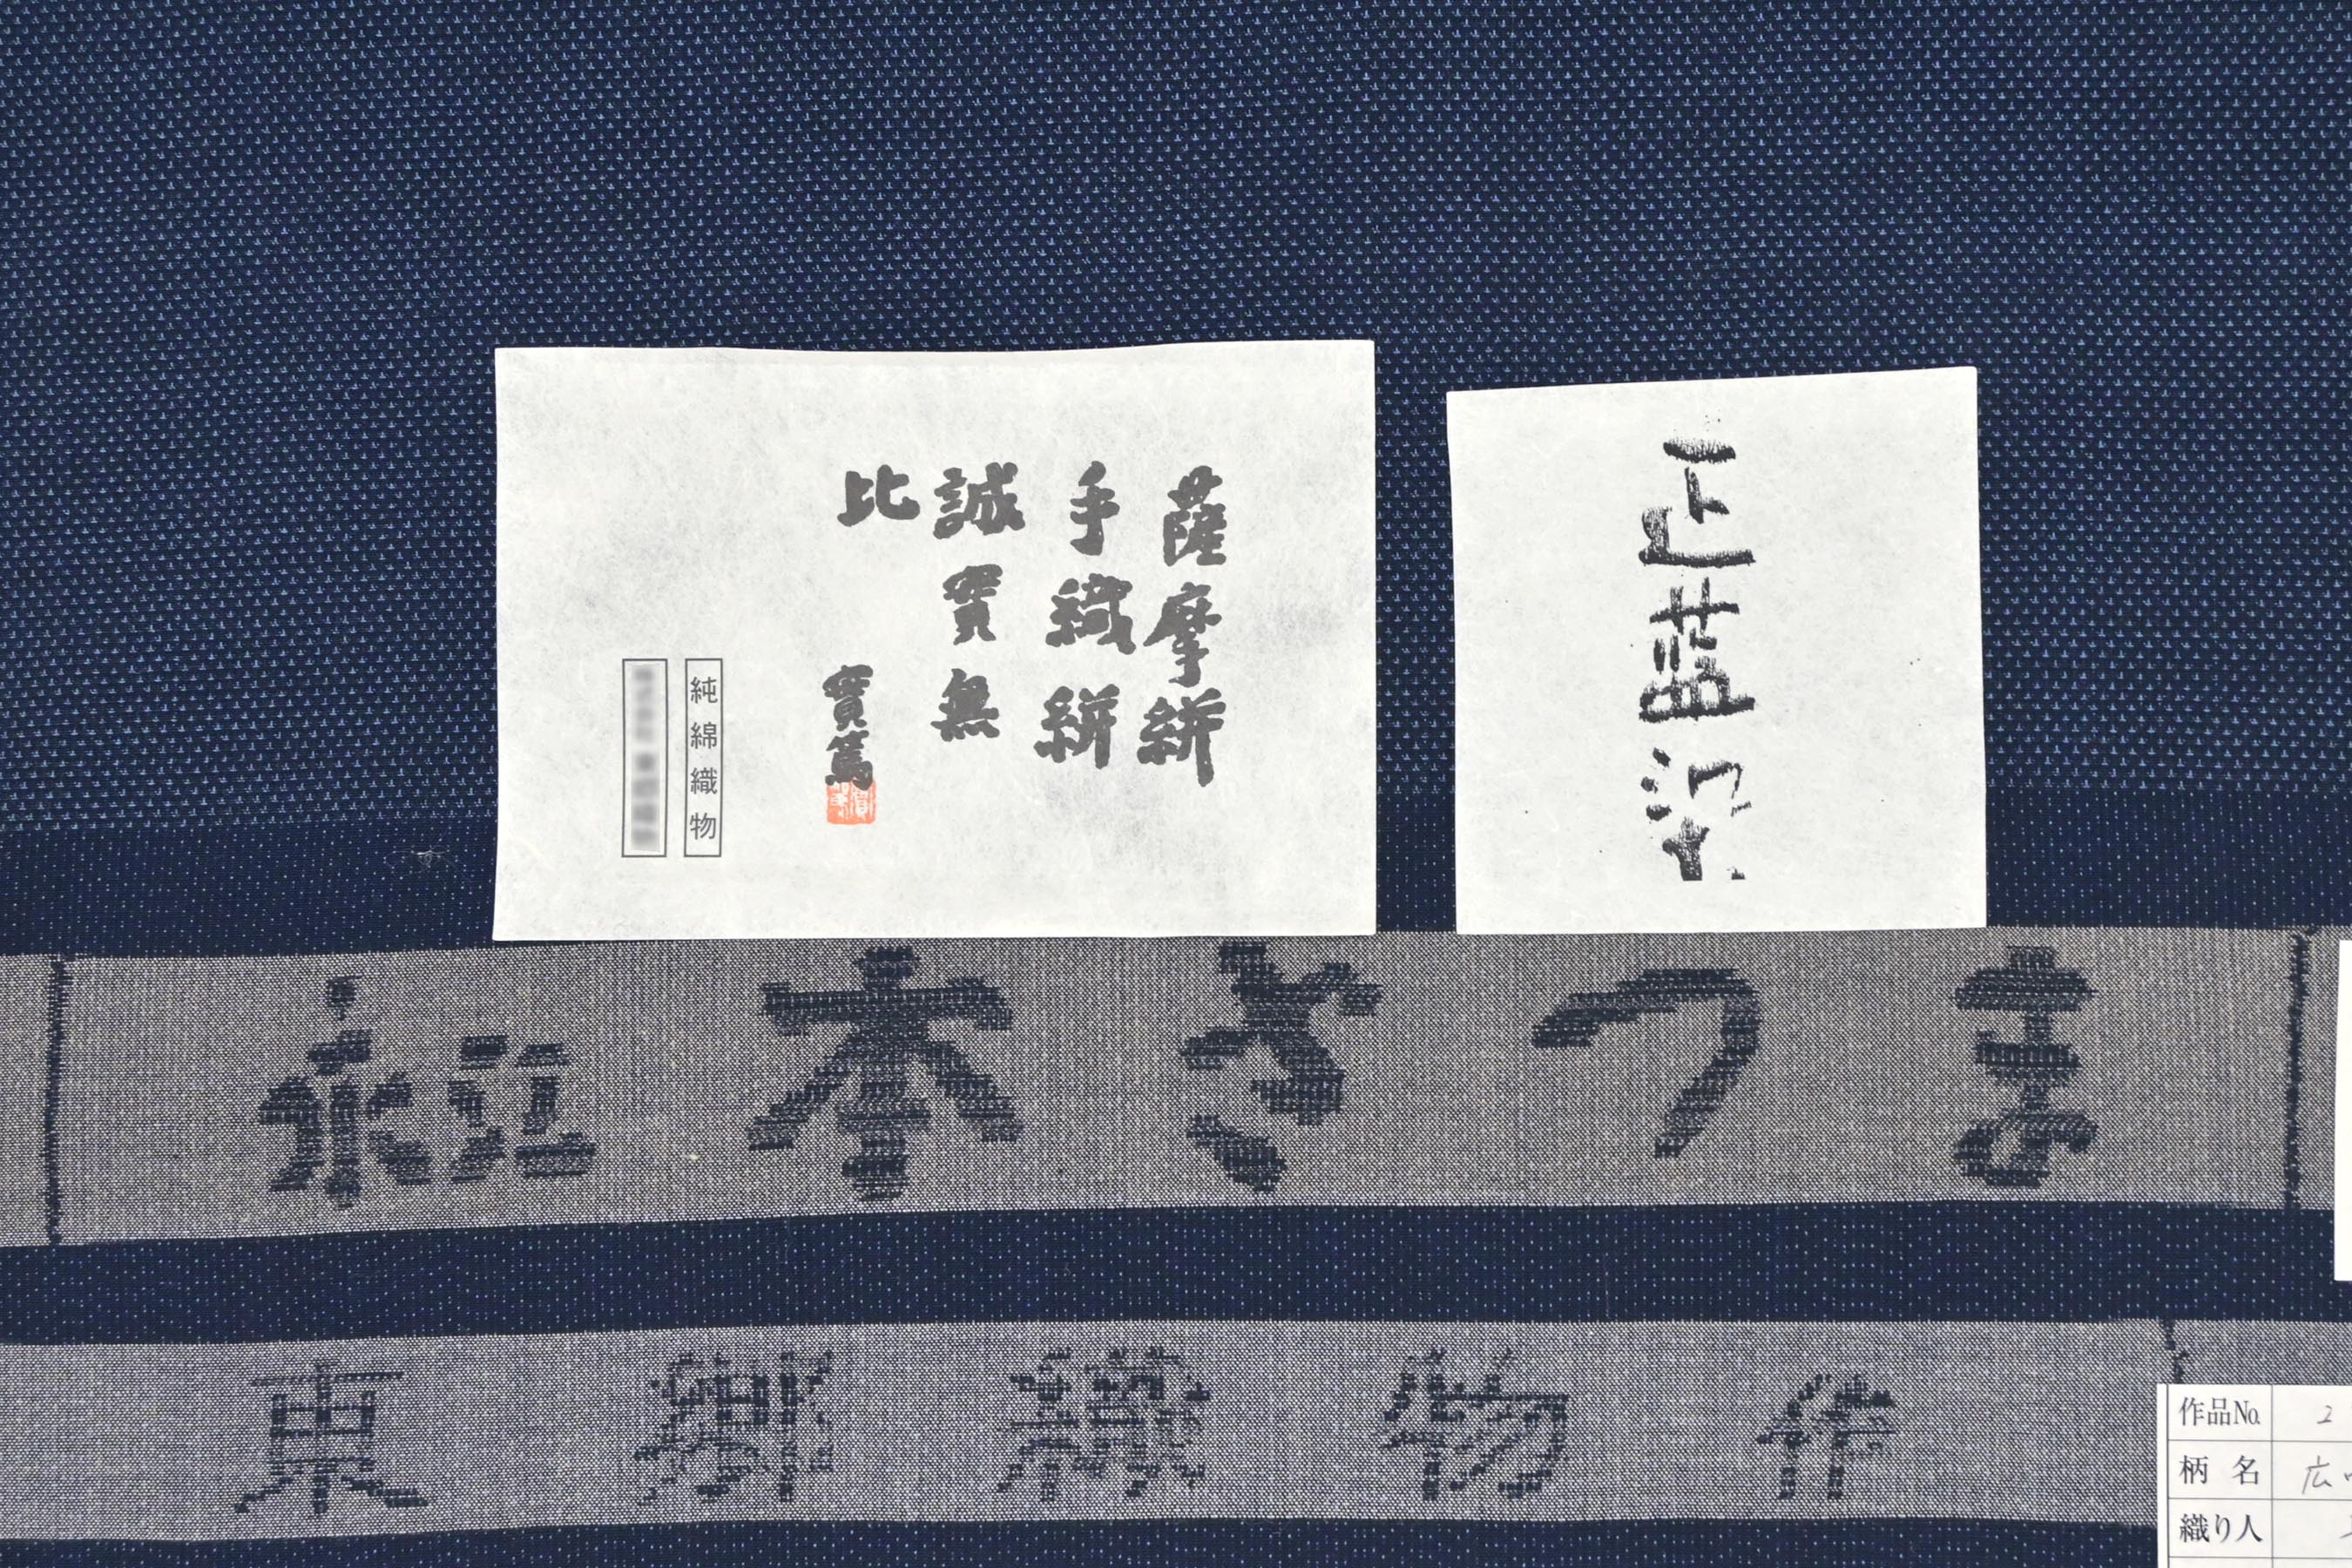 薩摩絣
手織絣
誠實無
比
實篤
純綿織物
正藍染
永江本さつま
東郷織物作
作品No. 2
柄名 広
織り人